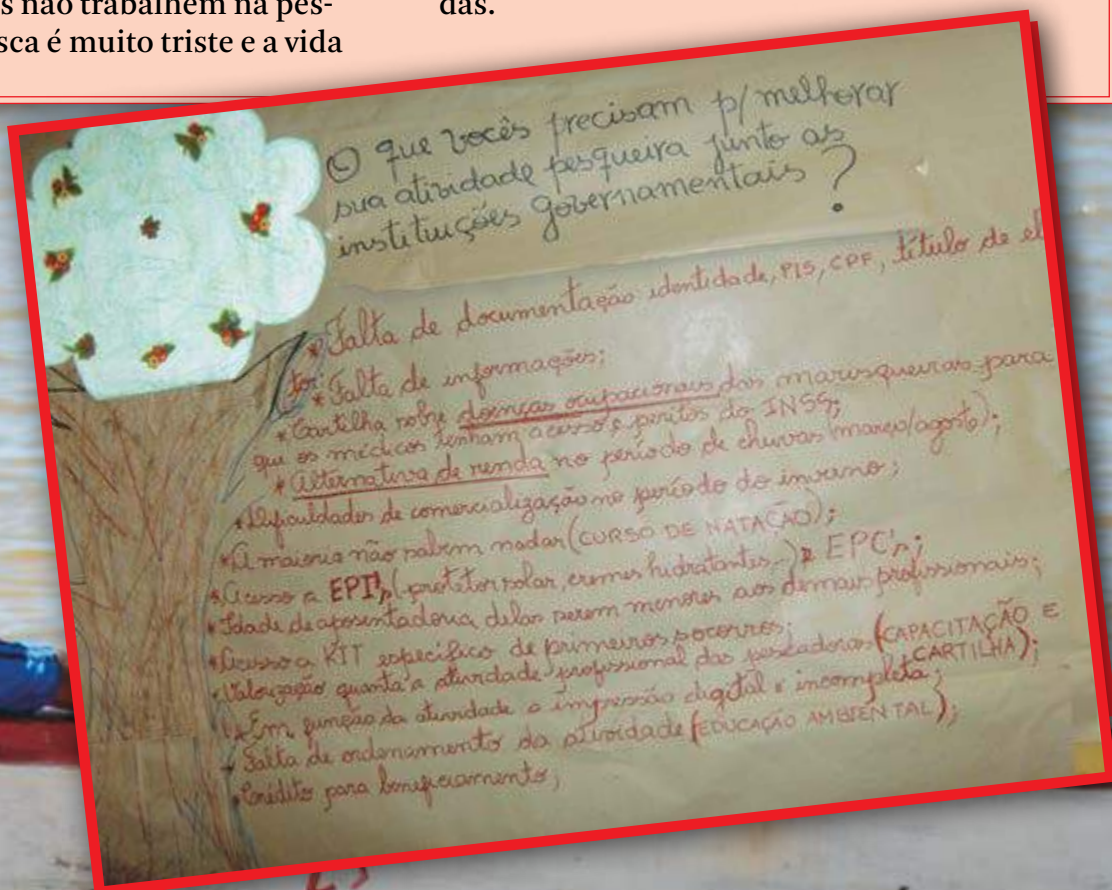 s não trabalhem na pes-
sca é muito triste e a vida
das.
O que vocês precisam p/ melhorar
sua atividade pesqueira junto as
instituições governamentais ?
* Falta de documentação identidade, PIS, CPF, título de el
tor;
* Falta de informações;
* Cartilha sobre doenças ocupacionais das marisqueiras para
que os médicos tenham acesso e peritos do INSS;
* Alternativa de renda no período de chuvas (março/agosto);
* Dificuldades de comercialização no período do inverno;
* A maioria não sabem nadar (CURSO DE NATAÇÃO);
* Acesso a EPI's (protetor solar, cremes hidratantes...) e EPC's;
* Idade de aposentadoria delas serem menores aos demais profissionais;
* Acesso a KIT específico de primeiros socorros;
* Valorização quanta a atividade profissional das pescadoras (CAPACITAÇÃO E
CARTILHA);
* Em função da atividade a impressão digital é incompleta;
* Falta de ordenamento da atividade (EDUCAÇÃO AMBIENTAL);
* Crédito para beneficiamento;